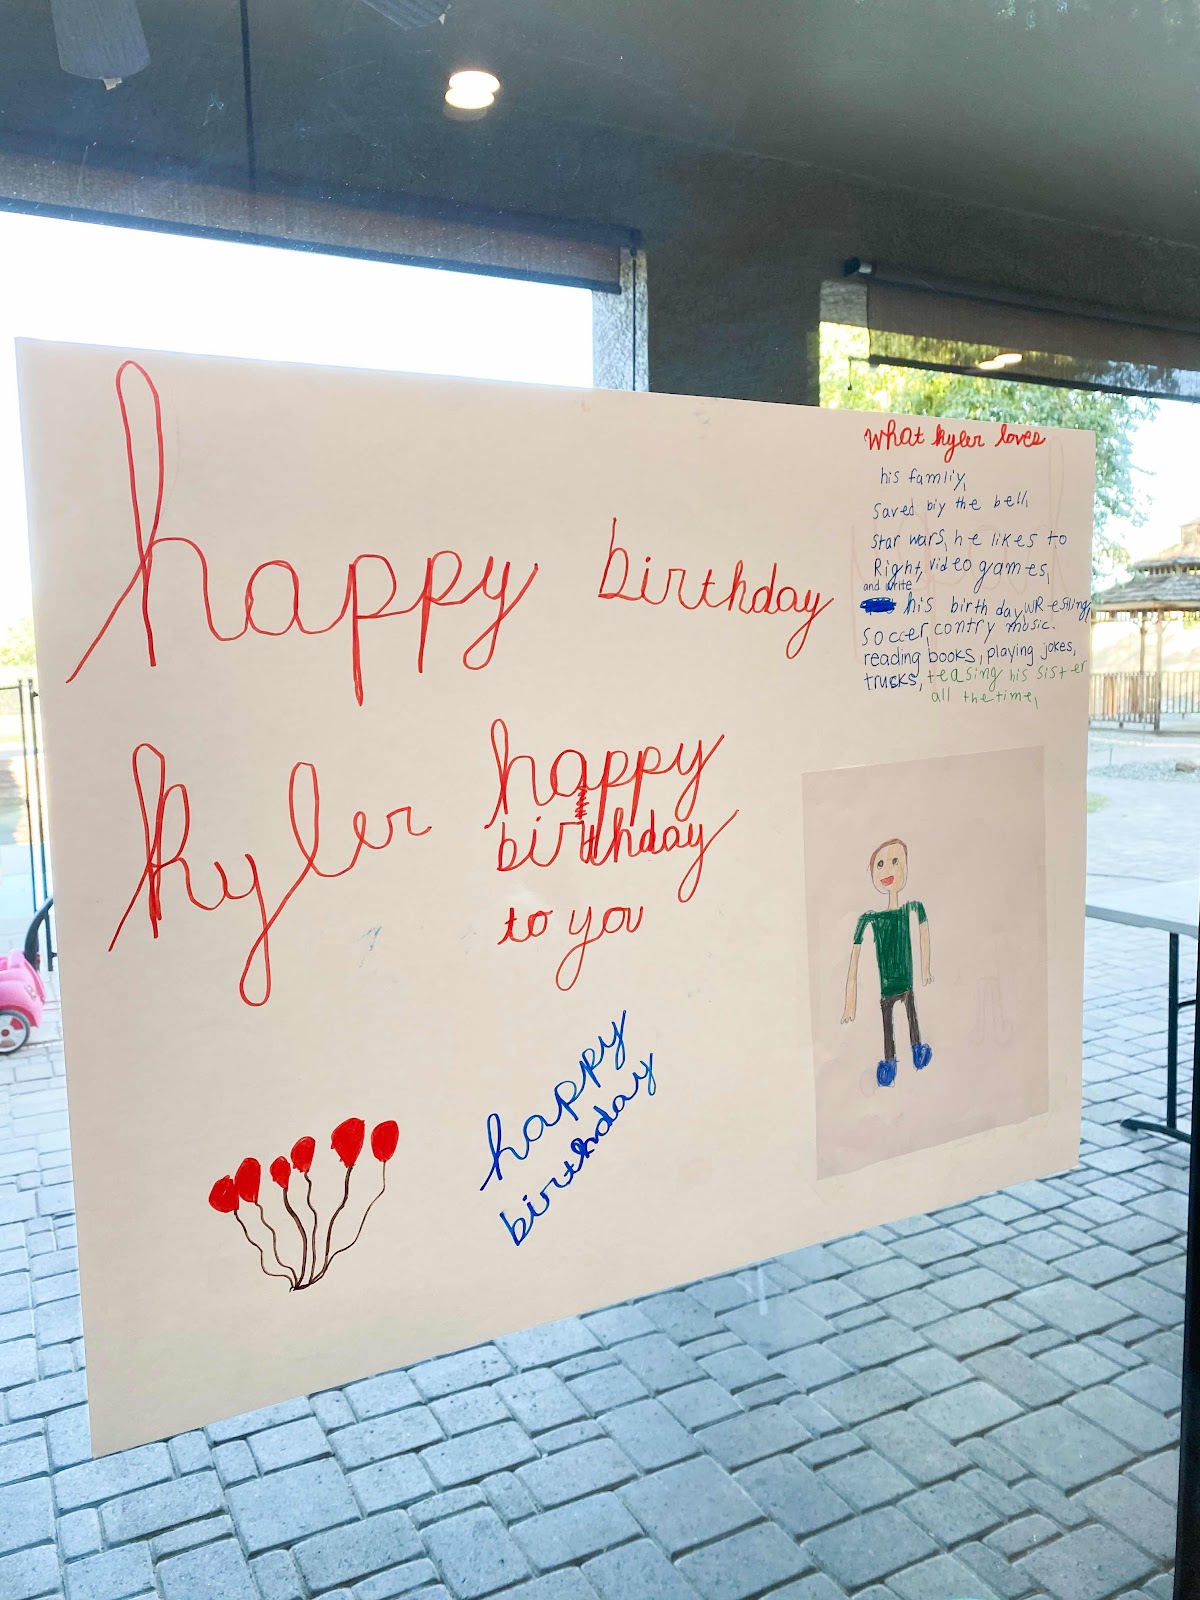 happy birthday
kyler
happy
birthday
to you
happy
birthday
what kyler loves
his famliy,
saved biy the bell,
star wars, he likes to
Right, video games,
and write
his birth day, wRestling,
soccer, contry music.
reading books, playing jokes,
trucks, teasing his sister
all the time,